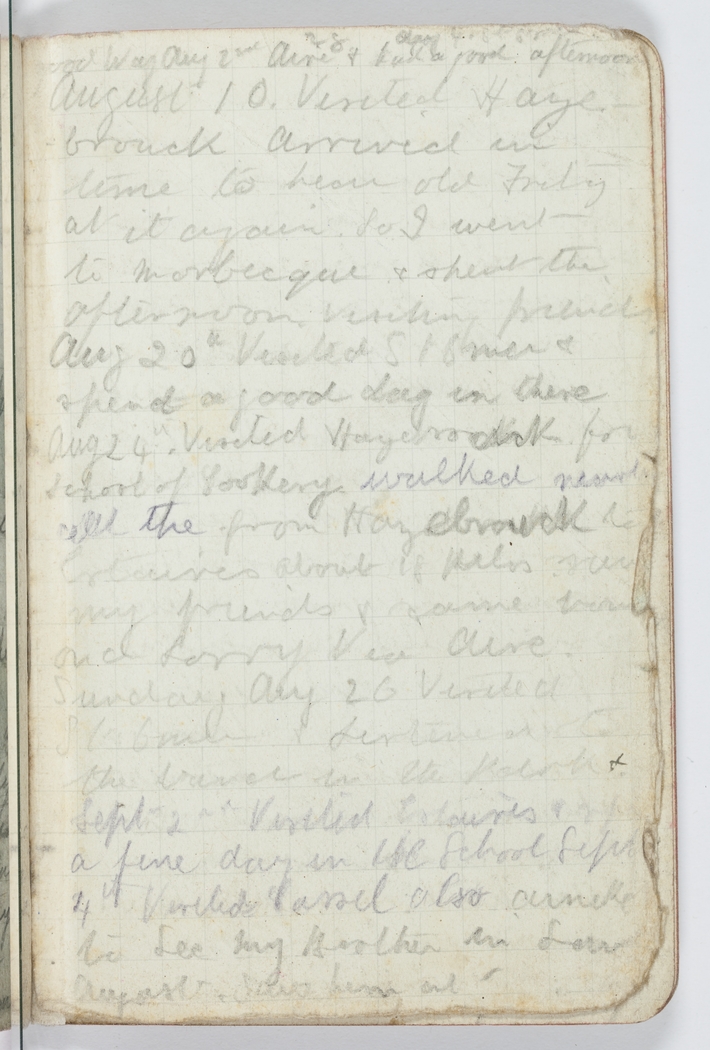 Aug 2nd Aire & had a good afternoon
August 10. Visited Haze-
brouck arrived in
time to hear old Fritz
at it again. So I went
to Morbecque & spent the
afternoon visiting friends
Aug 20th Visited St Omer &
spend a good day in there
Aug 24th. Visited Hazebrouck for
School of Cookery. walked nearly
all the from Hazebrouck to
Estaires about 18 kilos saw
my friends & came home
on a Lorry Via Aire.
Sunday Aug 26 Visited
St Omer & Listened to
the Band in the Park &
Sept 2nd Visited Estaires &
a fine day in the School Sept
4th Visited Cassel also
to See my Brother in Law
August. Saw him at